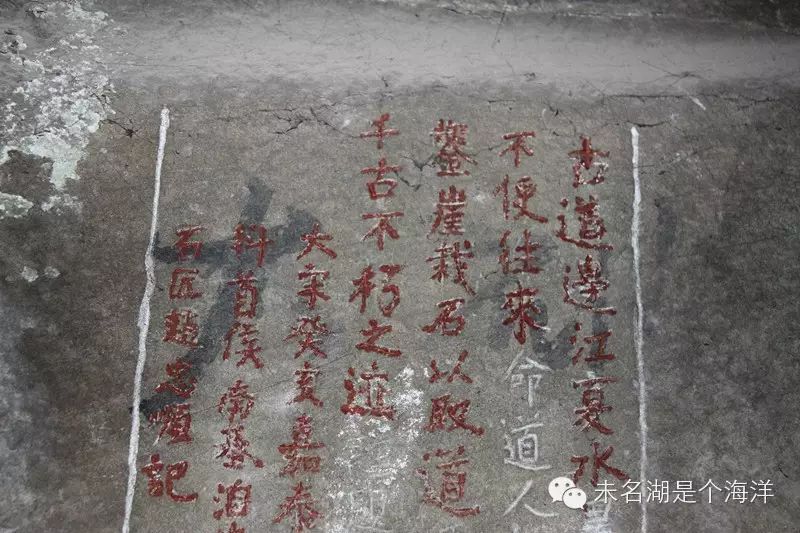 古道邊江夏水
不便往來命道人
鏨崖栽石以取道
千古不朽之迹
大宋癸亥嘉泰
科首侯南
石匠趙忠順記
未名湖是个海洋